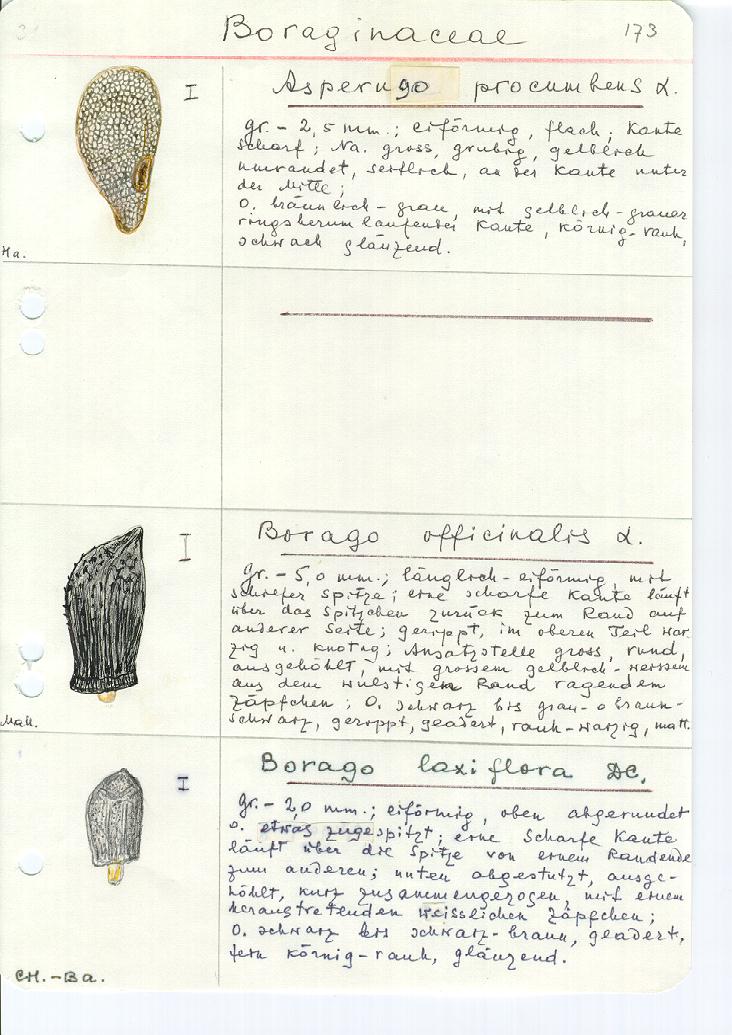 Boraginaceae
173
I
Asperugo procumbens L.
gr. – 2,5 mm.; eiförmig, flach; Kante
scharf; Na. gross, grubig, gelblich
umrandet, seitlich, an der Kante unter
der Mitte;
O. bräunlich-grau, mit gelblich-grauer
ringsherum laufender Kante, körnig-rauh,
schwach glänzend.
Ha.
I
Borago officinalis L.
gr. – 5,0 mm.; länglich-eiförmig, mit
schiefer Spitze; eine scharfe Kante läuft
über das Spitzchen zurück zum Rand auf
anderer Seite; gerippt, im oberen Teil war-
zig u. knotig; Ansatzstelle gross, rund,
ausgehöhlt, mit grossem gelblich-weissem
aus dem wulstigen Rand ragendem
Zäpfchen; O. schwarz bis grau- o braun-
schwarz, gerippt, geadert, rauh-warzig, matt.
I
Borago laxiflora DC.
gr. – 2,0 mm.; eiförmig, oben abgerundet
o. etwas zugespitzt; eine scharfe Kante
läuft über die Spitze von einem Randende
zum anderen; unten abgestutzt, ausge-
höhlt, kurz zusammengezogen, mit einem
heraustretenden weisslichen Zäpfchen;
O. schwarz bis schwarz-braun, geadert,
fein körnig-rauh, glänzend.
CH.-Ba.